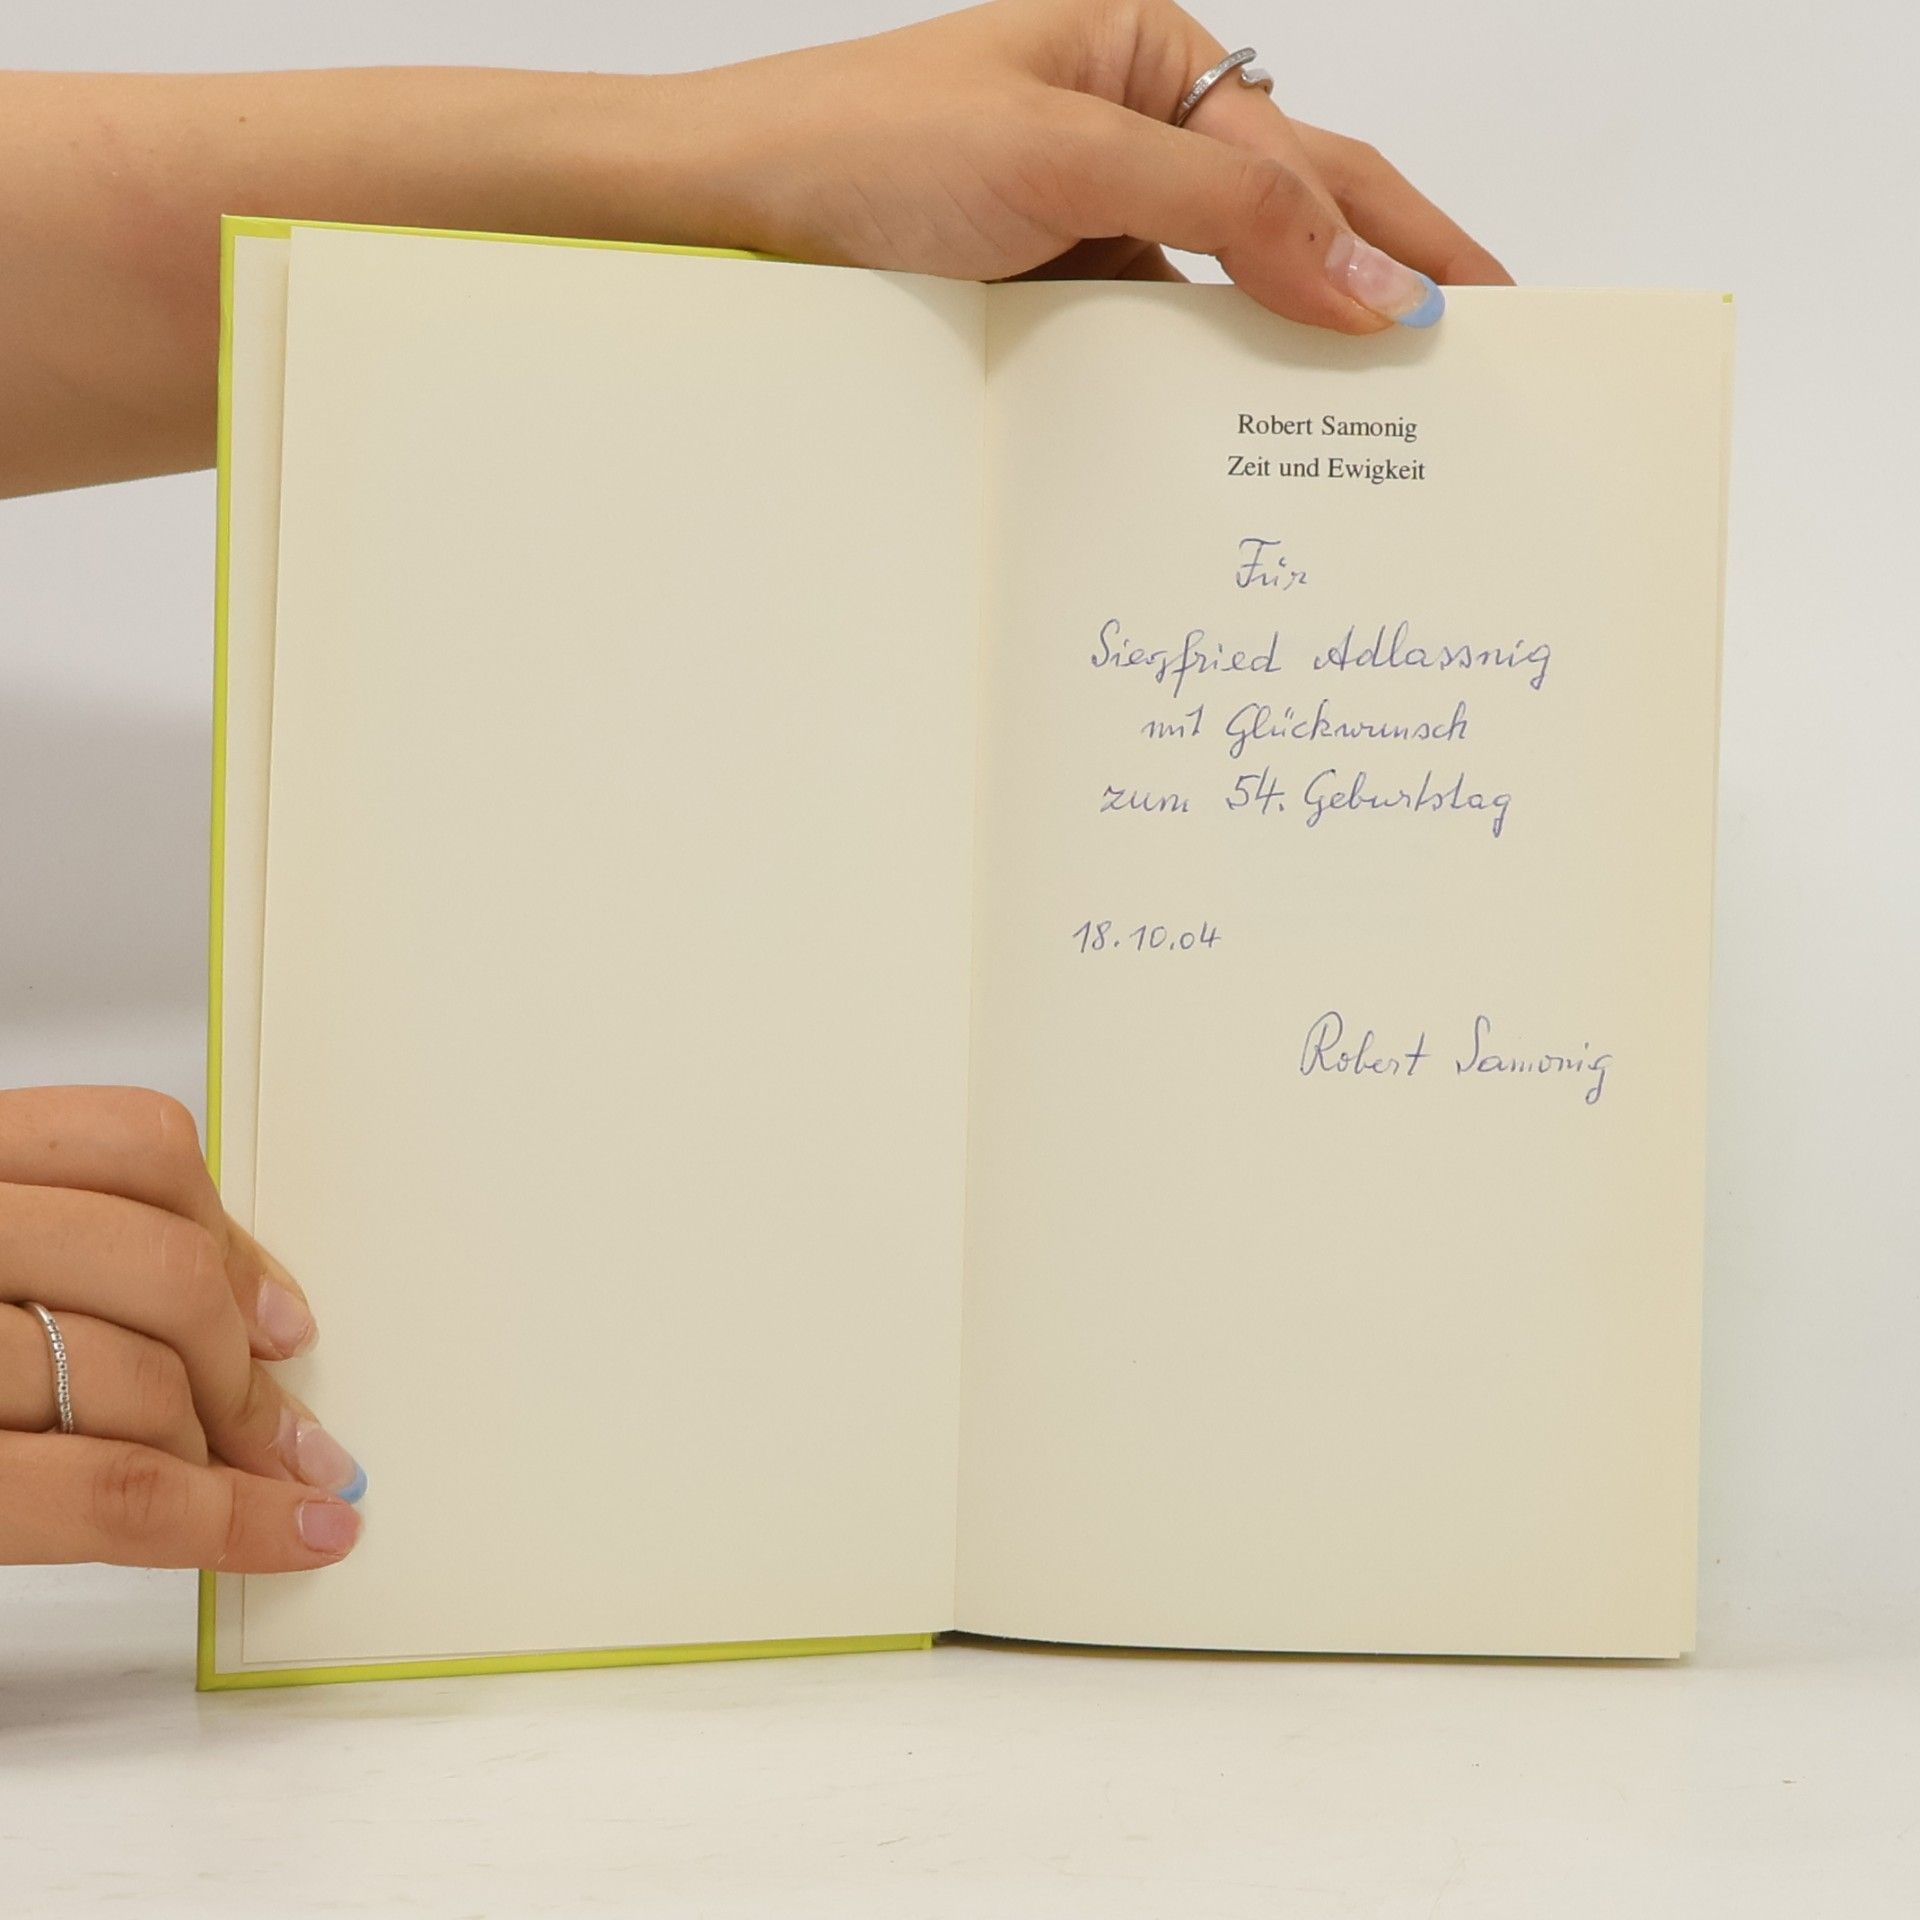 Robert Samonig
Zeit und Ewigkeit
Für
Siegfried Adlassnig
mit Glückwunsch
zum 54. Geburtstag
18.10.04
Robert Samonig